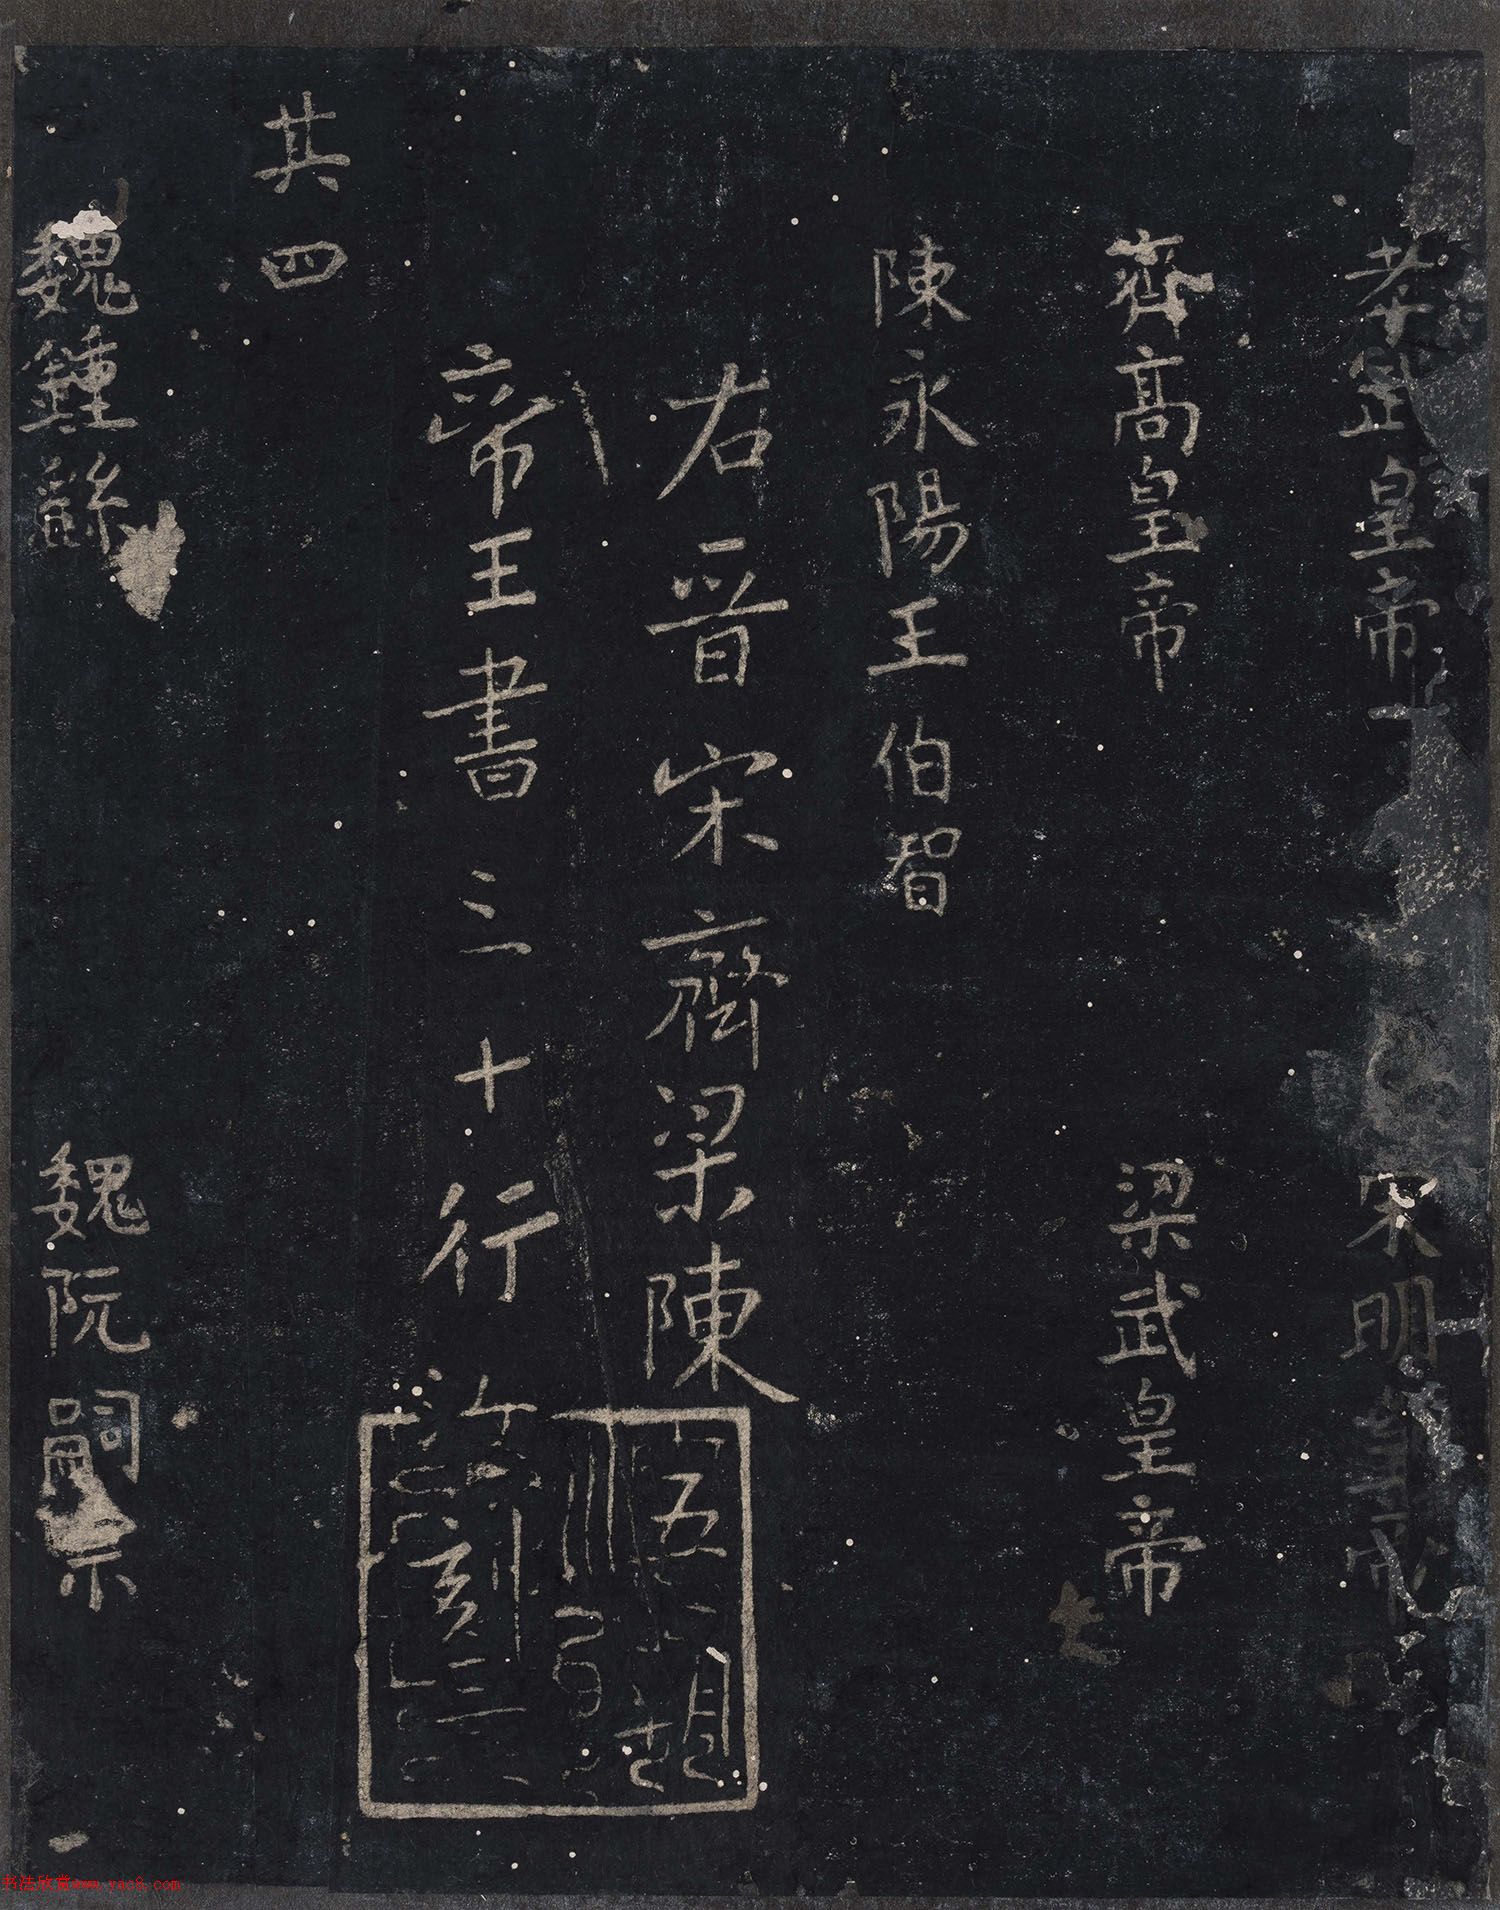 孝武皇帝 宋明皇帝
齊高皇帝 梁武皇帝
陳永陽王伯智
右晉宋齊梁陳
帝王書三十行
其四
魏鍾繇 魏阮嗣宗
书法欣赏www.yac8.com